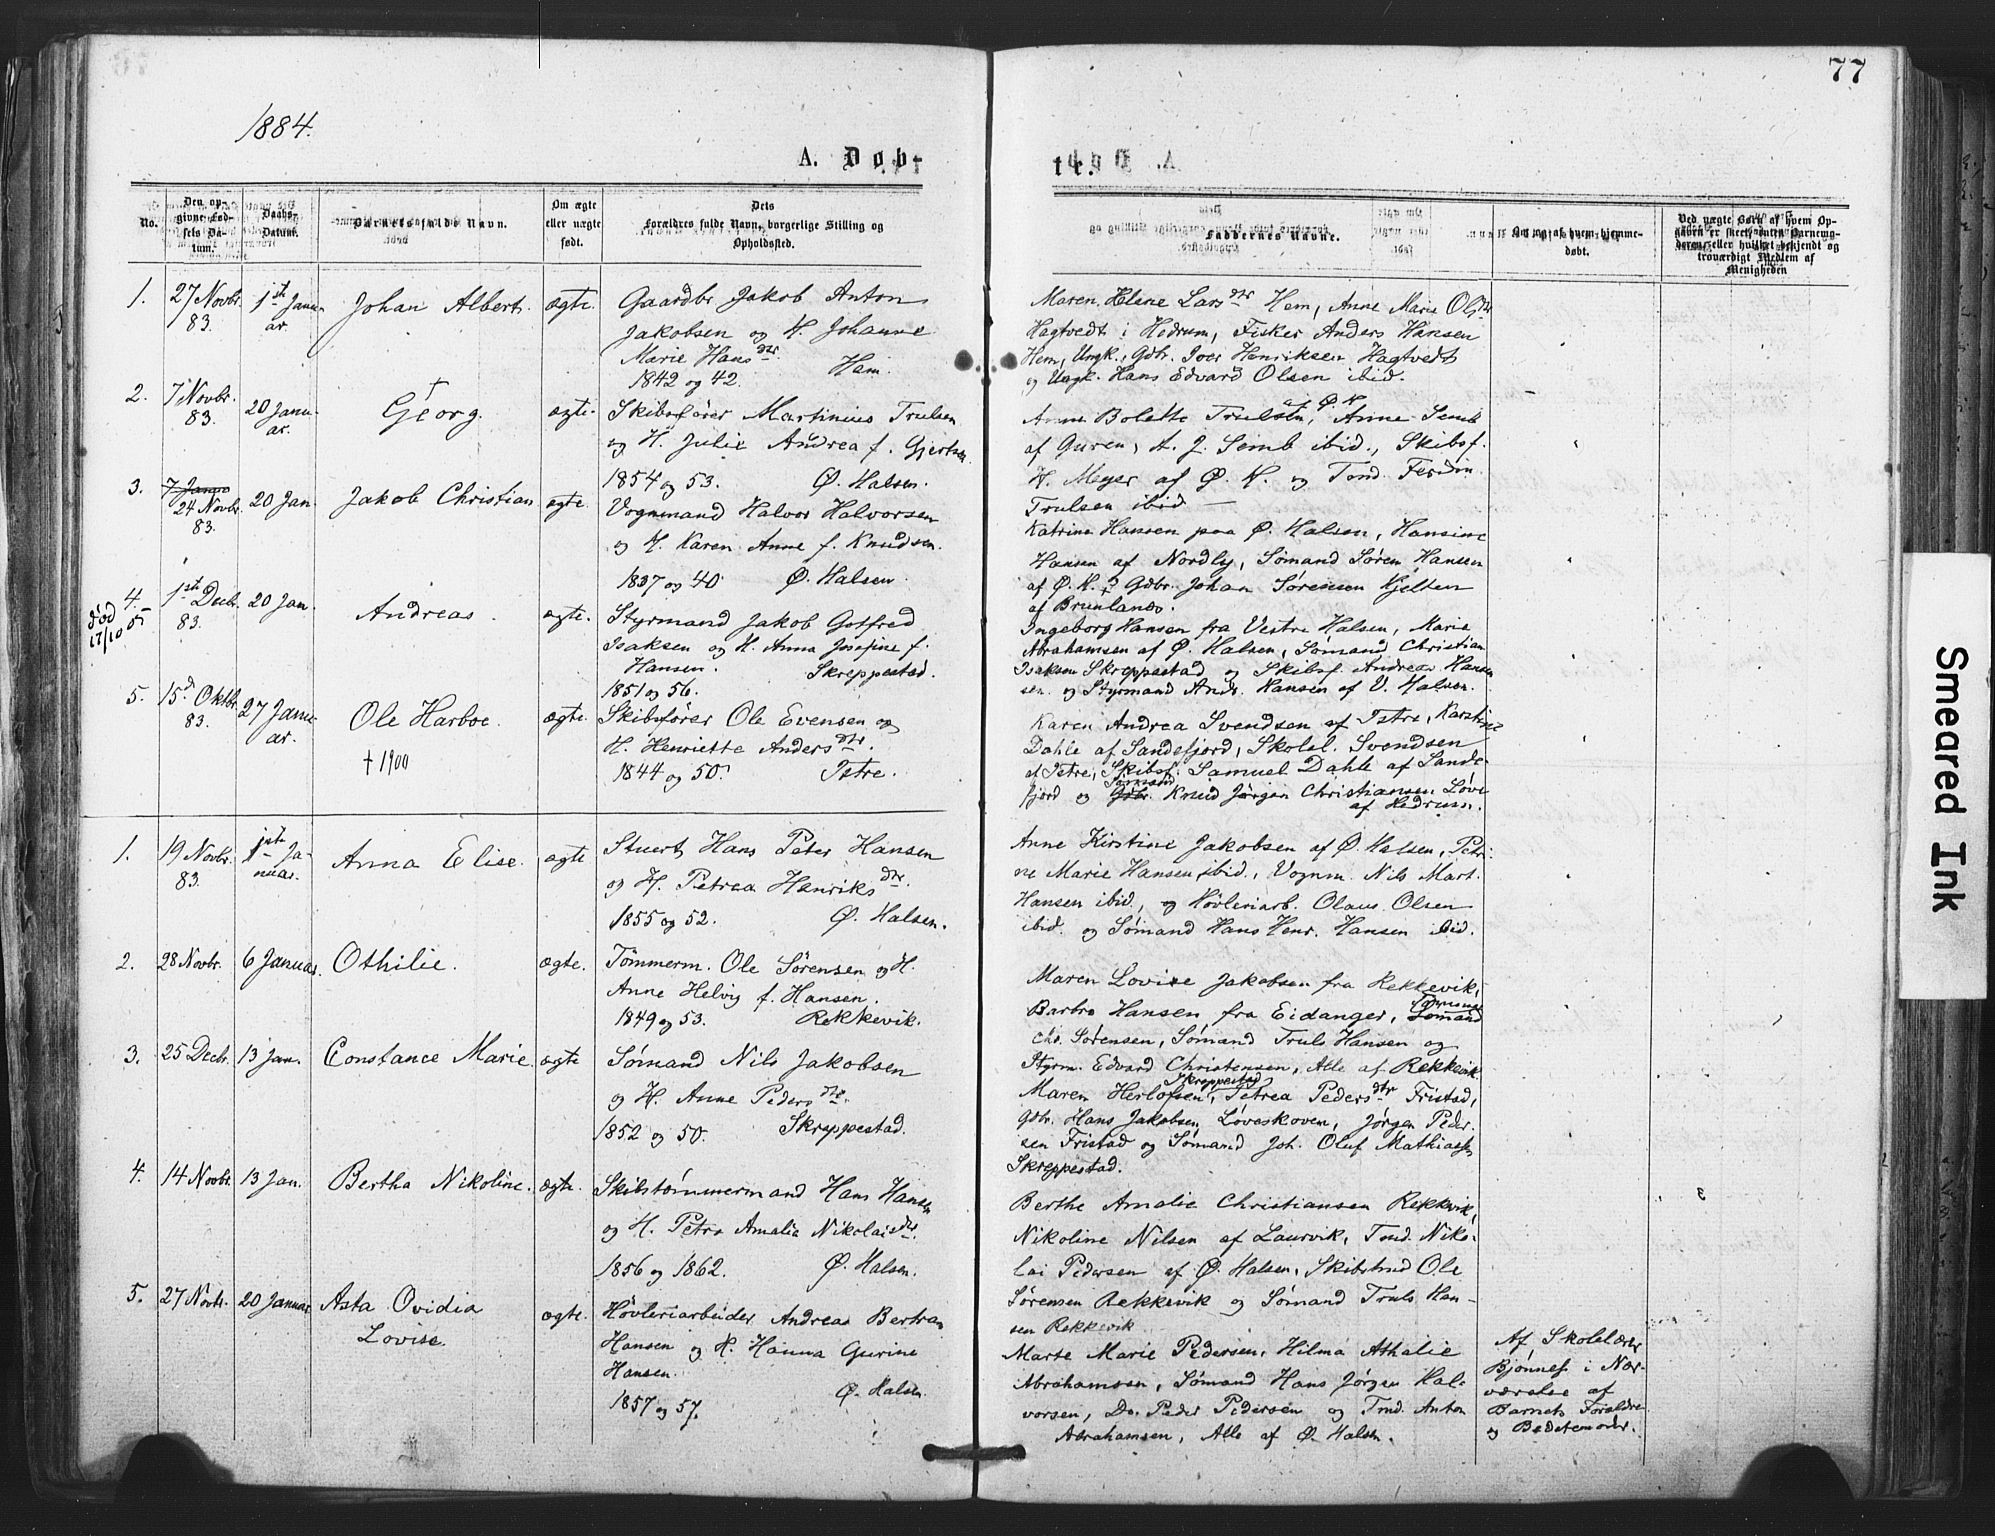 77
1884.
A. Døb-
te.
No.
Den op-
givne Fød-
sels Da-
tum.
Daabs-
Datum.
Barnets fulde Navn.
Om ægte
eller uægte
født.
Dets
Forældres fulde Navn, borgerlige Stilling og
Opholdssted.
Faddernes Navne.
Om og af hvem hjemme-
døbt.
Ved uægte Børn af hvem Op-
gaven er skeet, enten Barnemo-
deren eller hvilket bekjendt og
troværdigt Medlem af
Menigheden
1.
27 Novbr.
83.
1ste Janu-
ar.
Johan Albert.
ægte.
Gaardbr Jakob Anton
Jakobsen og H. Johanne
Marie Hansdtr.
1842 og 42. Hem.
Maren Helene Larsdtr Hem, Anne Marie Olsdtr
Hagtvedt i Hedrum, Fisker Anders Hansen
Hem, Ungk. Gdbr. Iver Henriksen Hagtvedt
og Ungk. Hans Edvard Olsen ibid.
2.
7 Novbr.
83.
20 Janu-
ar.
†
Georg.
ægte.
Skibsfører Martinius Trulsen
og H. Julie Andrea f. Gjertsen.
1854 og 53. Ø. Halsen.
Anne Bolette Trulsen af Ø. H, Anne Semb
af Guren, A. J. Semb ibid., Skibsf.
H. Meyer af Ø. H. og Tmd. Ferdin.
Trulsen ibid
3.
7 Janu
24 Novbr.
83.
20 Jan.
Jakob Christian
ægte.
Vognmand Halvor Halvorsen
og H. Karen Anne f. Knudsen.
1837 og 40. Ø. Halsen.
Katrine Hansen paa Ø. Halsen, Hansine
Hansen af Nordby, Sømand Søren Hansen
af Ø. H. & Gdbr. Johan Sørensen Kjelten
af Brunlanæs.
4.
død
17/10 05
1ste Decbr.
83.
20 Jan.
Andreas.
ægte.
Styrmand Jakob Gotfred
Isaksen og H. Anna Josefine f.
Hansen. Skreppestad.
1851 og 56.
Ingeborg Hansen fra Vestre Halsen, Marie
Abrahamsen af Ø. Halsen, Sømand Christian
Isaksen Skreppestad og Skibsf. Andreas Han
sen. og Styrmand Ands. Hansen af V. Halsen.
5.
15d Oktbr.
83.
27 Janu-
ar.
Ole Harboe
† 1900
ægte.
Skibsfører Ole Evensen og
H. Henriette Andersdtr.
1844 og 50. Istre.
Karen Andrea Svendsen af Istre, Karstine
Dahle af Sandefjord, Skolel. Svendsen
af Istre, Skibsf. Samuel Dahle af Sande-
fjord og Gdbr. Sømand Knud Jørgen Christiansen Løve
af Hedrum.
1.
19 Novbr.
83.
1ste Ja-
nuar.
Anna Elise.
ægte
Stuert Hans Peter Hansen
og H. Petrea Henriksdtr.
1855 og 52. Ø. Halsen.
Anne Kirstine Jakobsen af Ø. Halsen, Petri-
ne Marie Hansen ibid., Vognm. Nils Mart.
Hansen ibid., og Høvleriarb. Olaus Olsen
ibid. og Sømand Hans Henr. Hansen ibid.
2.
28 Novbr.
6 Januar.
Othilie.
ægte.
Tømmerm. Ole Sørensen og H.
Anne Helvig f. Hansen.
1849 og 53. Rekkevik.
Maren Lovise Jakobsen fra Rekkevik,
Barbro Hansen fra Eidanger, Sømand
Chs. Sørensen, Sømand Truls Hansen og
Styrm. Edvard Christensen, Alle af Rekkevik.
3.
25 Decbr.
13 Jan.
Constance Marie
ægte
Sømand Nils Jakobsen
og H. Anne Pedersdtr.
1852 og 50. Skreppestad.
Maren Herlofsen, Skreppestad Petrea Pedersdtr Fristad,
Gdbr. Hans Jakobsen, Løveskoven, Jørgen Peder-
sen Fristad og Sømand Joh. Oluf Mathiass
Skreppestad.
4.
14 Novbr.
13 Jan.
Bertha Nikoline.
ægte.
Skibstømmermand Hans Hansen
og H. Petra Amalia Nikolaisdtr.
1856 og 1862. Ø. Halsen.
Berthe Amalie Christiansen Rekkevik,
Nikoline Nilsen af Laurvik, Tmd. Niko-
lai Pedersen af Ø. Halsen, Skibstmd Ole
Sørensen Rekkevik og Sømand Truls Han-
sen Rekkevik
5.
27 Novbr.
20 Januar
Asta Ovidia
Lovise.
ægte.
Høvleriarbeider Andreas Bertran
Hansen og H. Hanna Gurine
Hansen.
1857 og 57. Ø. Halsen.
Marte Marie Pedersen, Hilma Athalie
Abrahamsen, Sømand Hans Jørgen Hal-
vorsen, Do. Peder Pedersen og Tmd. Anton
Abrahamsen, Alle af Ø. Halsen.
Af Skolelærer
Bjønnes i Nær-
værelse af
Barnets Forældre
og Bedstemoder.
Smeared Ink